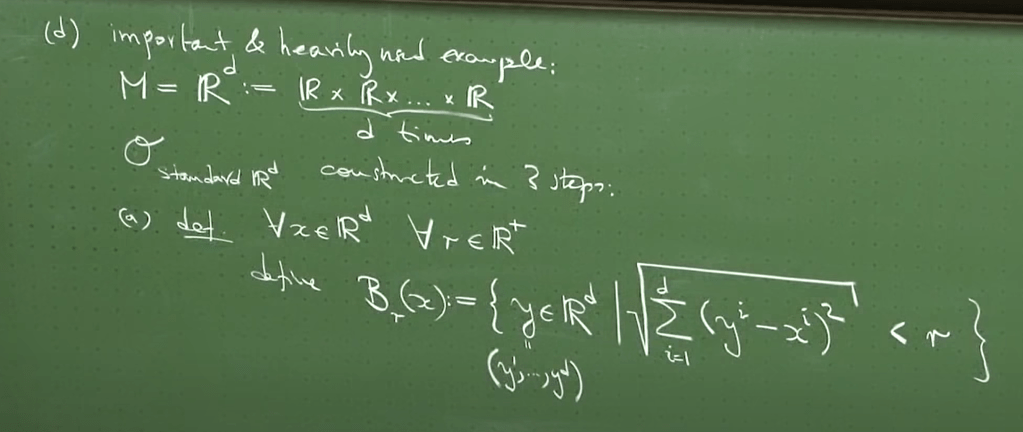 (d) important & heavily used example:
M = ℝᵈ := ℝ × ℝ × ... × ℝ
d times
𝒪 standard ℝᵈ constructed in 3 steps:
(a) def. ∀x∈ℝᵈ ∀r∈ℝ⁺
define Bᵣ(x) := { y∈ℝᵈ | √(∑ᵢ₌₁ᵈ (yⁱ − xⁱ)²) < r }
"
(y¹,...,yᵈ)